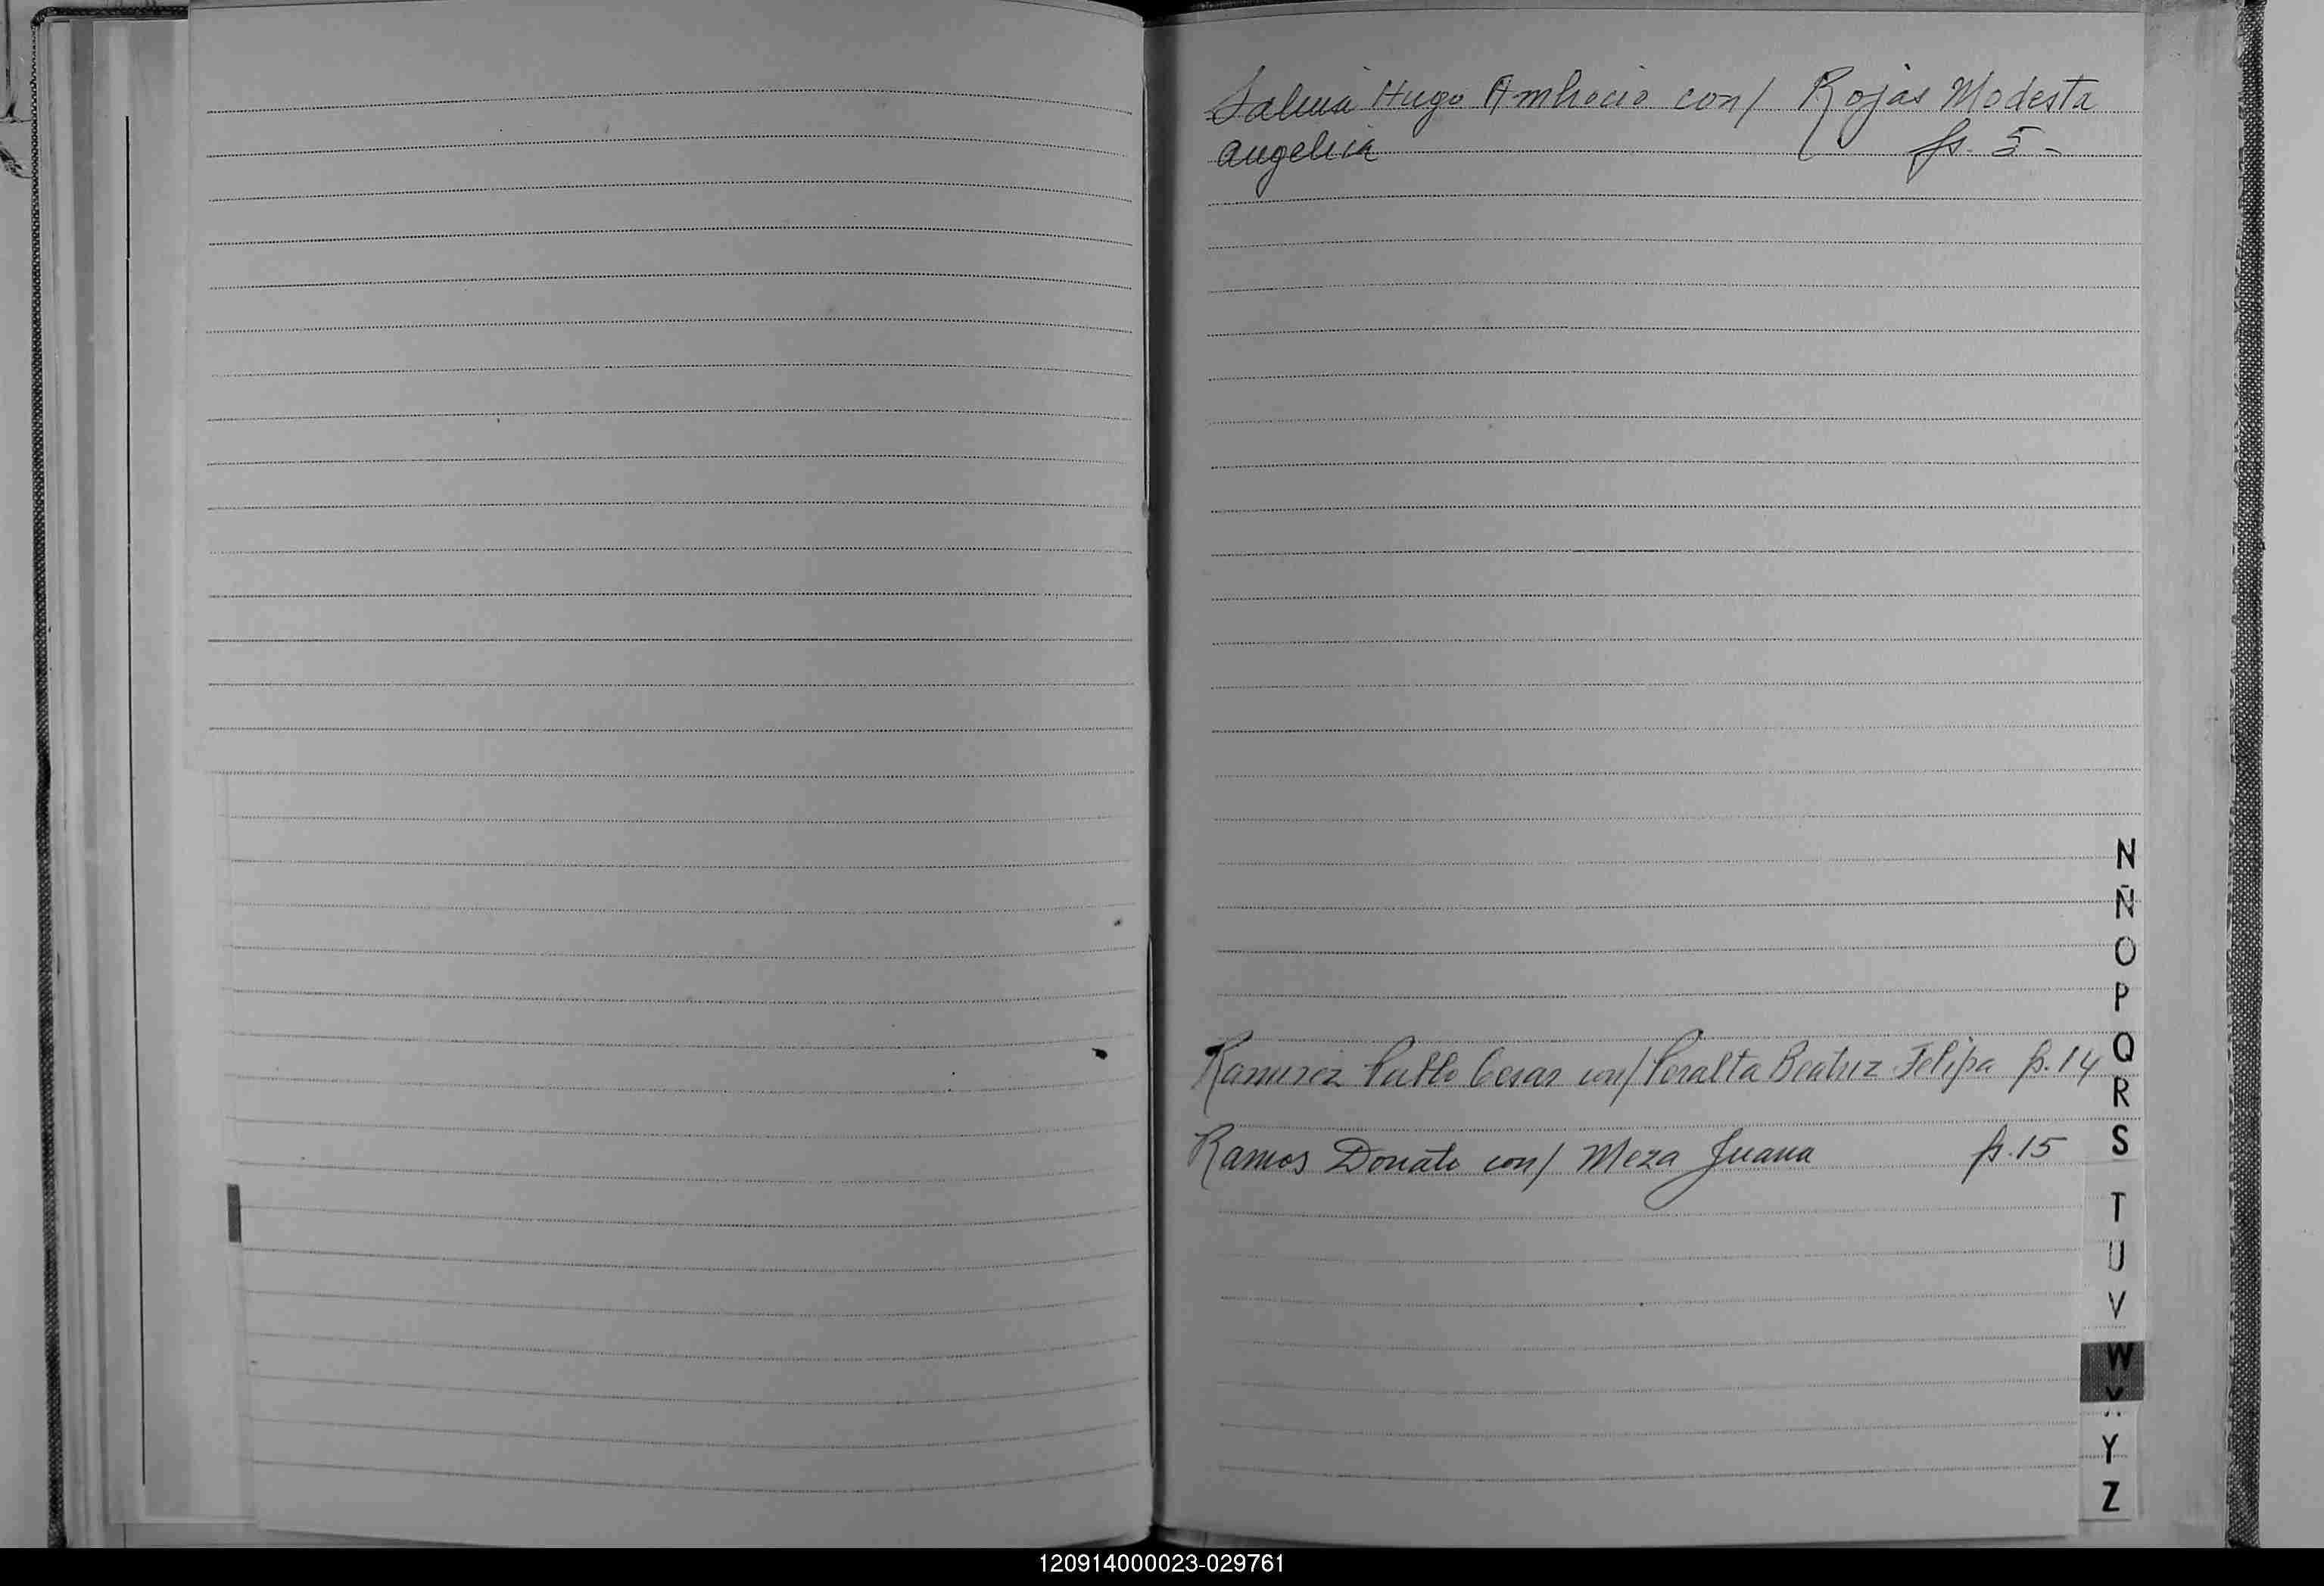 Salma Hugo Ambrocio con/ Rojas Modesta
Angelica fs. 5-
N
Ñ
O
P
Ramirez Pablo Cesar con/ Peralta Beatriz Felipa fs. 14
Q
R
Ramos Donato con/ Meza Juana fs. 15
S
T
U
V
W
Y
Z
120914000023-029761